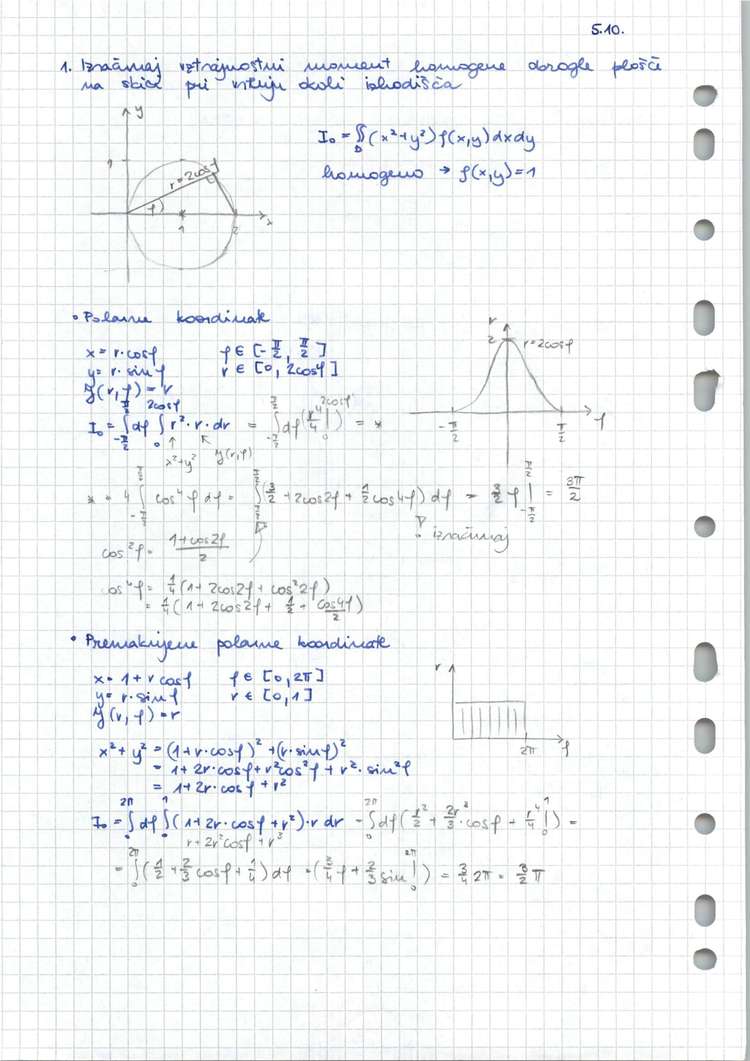 5.10.
1. Izračunaj vztrajnostni moment homogene okrogle plošče
na skici pri vrtenju okoli izhodišča
y
1
r=2cosφ
φ
1
2
x
I₀ = ∬_D (x²+y²) ρ(x,y) dxdy
homogeno → ρ(x,y)=1
• Polarne koordinate
x = r·cosφ φ ∈ [-π/2, π/2]
y = r·sinφ r ∈ [0, 2cosφ]
J(r,φ) = r
r
2
r=2cosφ
-π/2
π/2
φ
I₀ = ∫_{-π/2}^{π/2} dφ ∫_0^{2cosφ} r²·r·dr = ∫_{-π/2}^{π/2} dφ (r⁴/4 |_0^{2cosφ}) = *
x²+y² J(r,φ)
* = 4 ∫_{-π/2}^{π/2} cos⁴φ dφ = ∫_{-π/2}^{π/2} (3/2 + 2cos2φ + 1/2 cos4φ) dφ = 3/2 φ |_{-π/2}^{π/2} = 3π/2
! izračunaj
cos²φ = (1+cos2φ)/2
cos⁴φ = 1/4 (1+2cos2φ + cos²2φ)
= 1/4 (1+2cos2φ + 1/2 + cos4φ/2)
• Premaknjene polarne koordinate
x = 1 + r cosφ φ ∈ [0, 2π]
y = r·sinφ r ∈ [0, 1]
J(r,φ) = r
r
2π
φ
x²+y² = (1+r·cosφ)² + (r·sinφ)²
= 1 + 2r·cosφ + r²cos²φ + r²·sin²φ
= 1 + 2r·cosφ + r²
I₀ = ∫_0^{2π} dφ ∫_0^1 (1+2r·cosφ+r²)·r dr = ∫_0^{2π} dφ (r²/2 + 2r³/3 cosφ + r⁴/4 |_0^1) =
r+2r²cosφ+r³
= ∫_0^{2π} (1/2 + 2/3 cosφ + 1/4) dφ = (3/4 φ + 2/3 sin |_0^{2π}) = 3/4 2π = 3/2 π